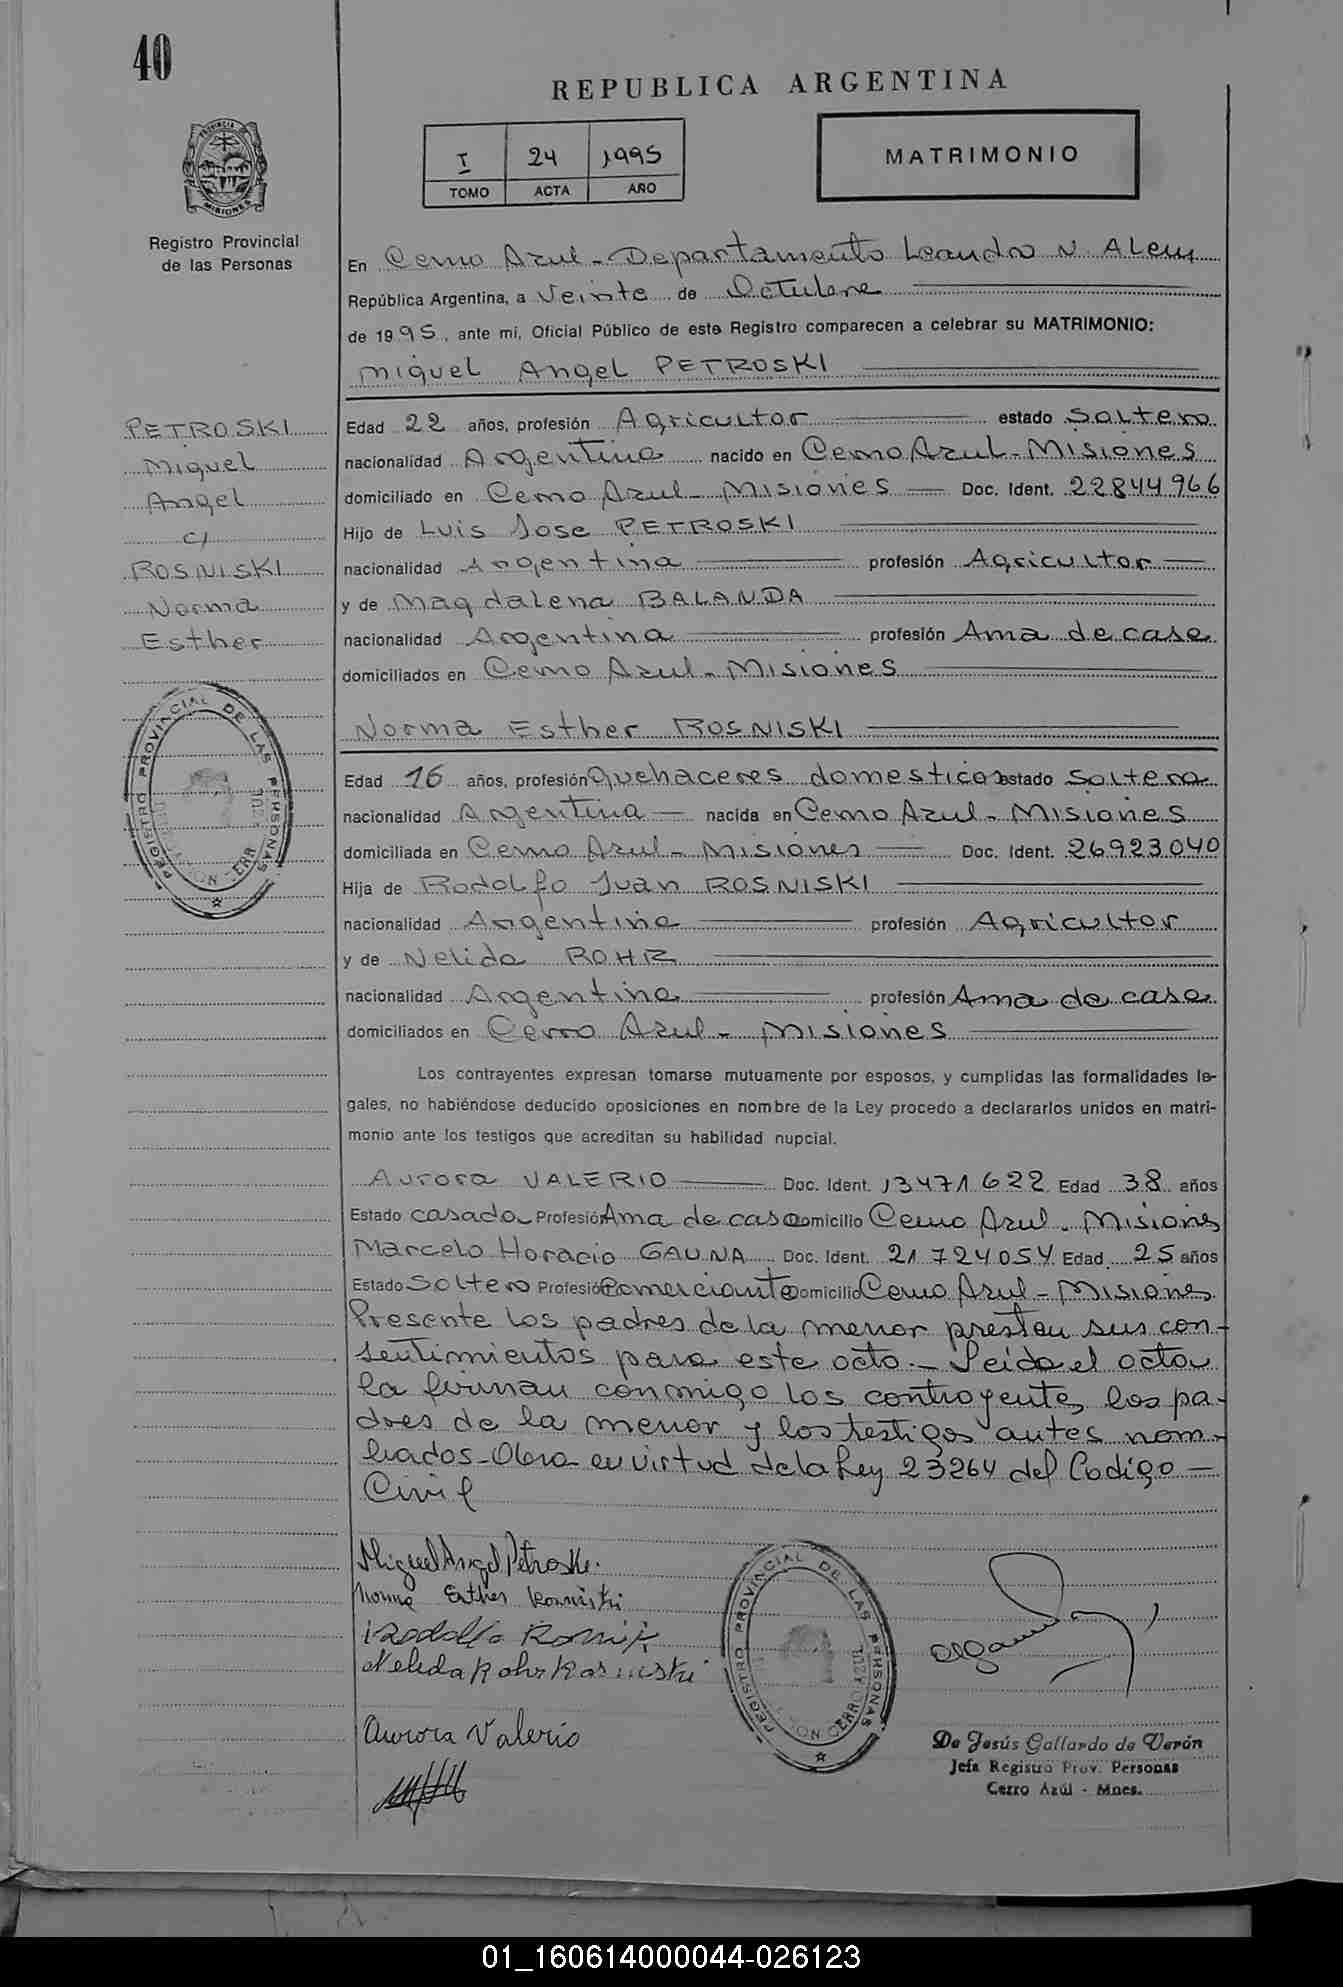 40
REPUBLICA ARGENTINA
I 24 1995
TOMO ACTA AÑO
MATRIMONIO
PROVINCIA DE
MISIONES
Registro Provincial
de las Personas
En Cerro Azul - Departamento Leandro N. Alem
República Argentina, a Veinte de Octubre
de 1995, ante mí, Oficial Público de este Registro comparecen a celebrar su MATRIMONIO:
Miguel Angel PETROSKI
PETROSKI
Miguel
Angel
c/
ROSNISKI
Norma
Esther
Edad 22 años, profesión Agricultor estado Soltero
nacionalidad Argentina nacido en Cerro Azul - Misiones
domiciliado en Cerro Azul - Misiones Doc. Ident. 22844966
Hijo de Luis Jose PETROSKI
nacionalidad Argentina profesión Agricultor
y de Magdalena BALANDA
nacionalidad Argentina profesión Ama de casa
domiciliados en Cerro Azul - Misiones
REGISTRO PROVINCIAL DE LAS PERSONAS
Norma Esther ROSNISKI
Edad 16 años, profesión Quehaceres domesticos estado Soltera
nacionalidad Argentina nacida en Cerro Azul - Misiones
domiciliada en Cerro Azul - Misiones Doc. Ident. 26923040
Hija de Rodolfo Juan ROSNISKI
nacionalidad Argentina profesión Agricultor
y de Nelida ROHR
nacionalidad Argentina profesión Ama de casa
domiciliados en Cerro Azul - Misiones
Los contrayentes expresan tomarse mutuamente por esposos, y cumplidas las formalidades le-
gales, no habiéndose deducido oposiciones en nombre de la Ley procedo a declararlos unidos en matri-
monio ante los testigos que acreditan su habilidad nupcial.
Aurora VALERIO Doc. Ident. 13471622 Edad 38 años
Estado casada Profesión Ama de casa Domicilio Cerro Azul - Misiones
Marcelo Horacio GAUNA Doc. Ident. 21724054 Edad 25 años
Estado Soltero Profesión Comerciante Domicilio Cerro Azul - Misiones
Presente los padres de la menor prestan sus con-
sentimientos para este acto.- Leida el acta
la firman conmigo los contrayentes, los pa-
dres de la menor y los testigos antes nom-
brados - Obra en virtud de la Ley 23264 del Codigo -
Civil
Miguel Angel Petroski.
Norma Esther Rosniski
Rodolfo Rosniski
Nelida Rohr Rosniski
REGISTRO PROVINCIAL DE LAS PERSONAS
Aurora Valerio
De Jesús Gallardo de Verón
Jefa Registro Prov. Personas
Cerro Azúl - Mnes.
01_160614000044-026123